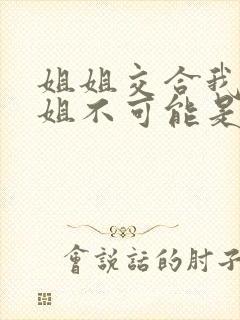 姐姐交合我
姐不可能是
會說話的肘子